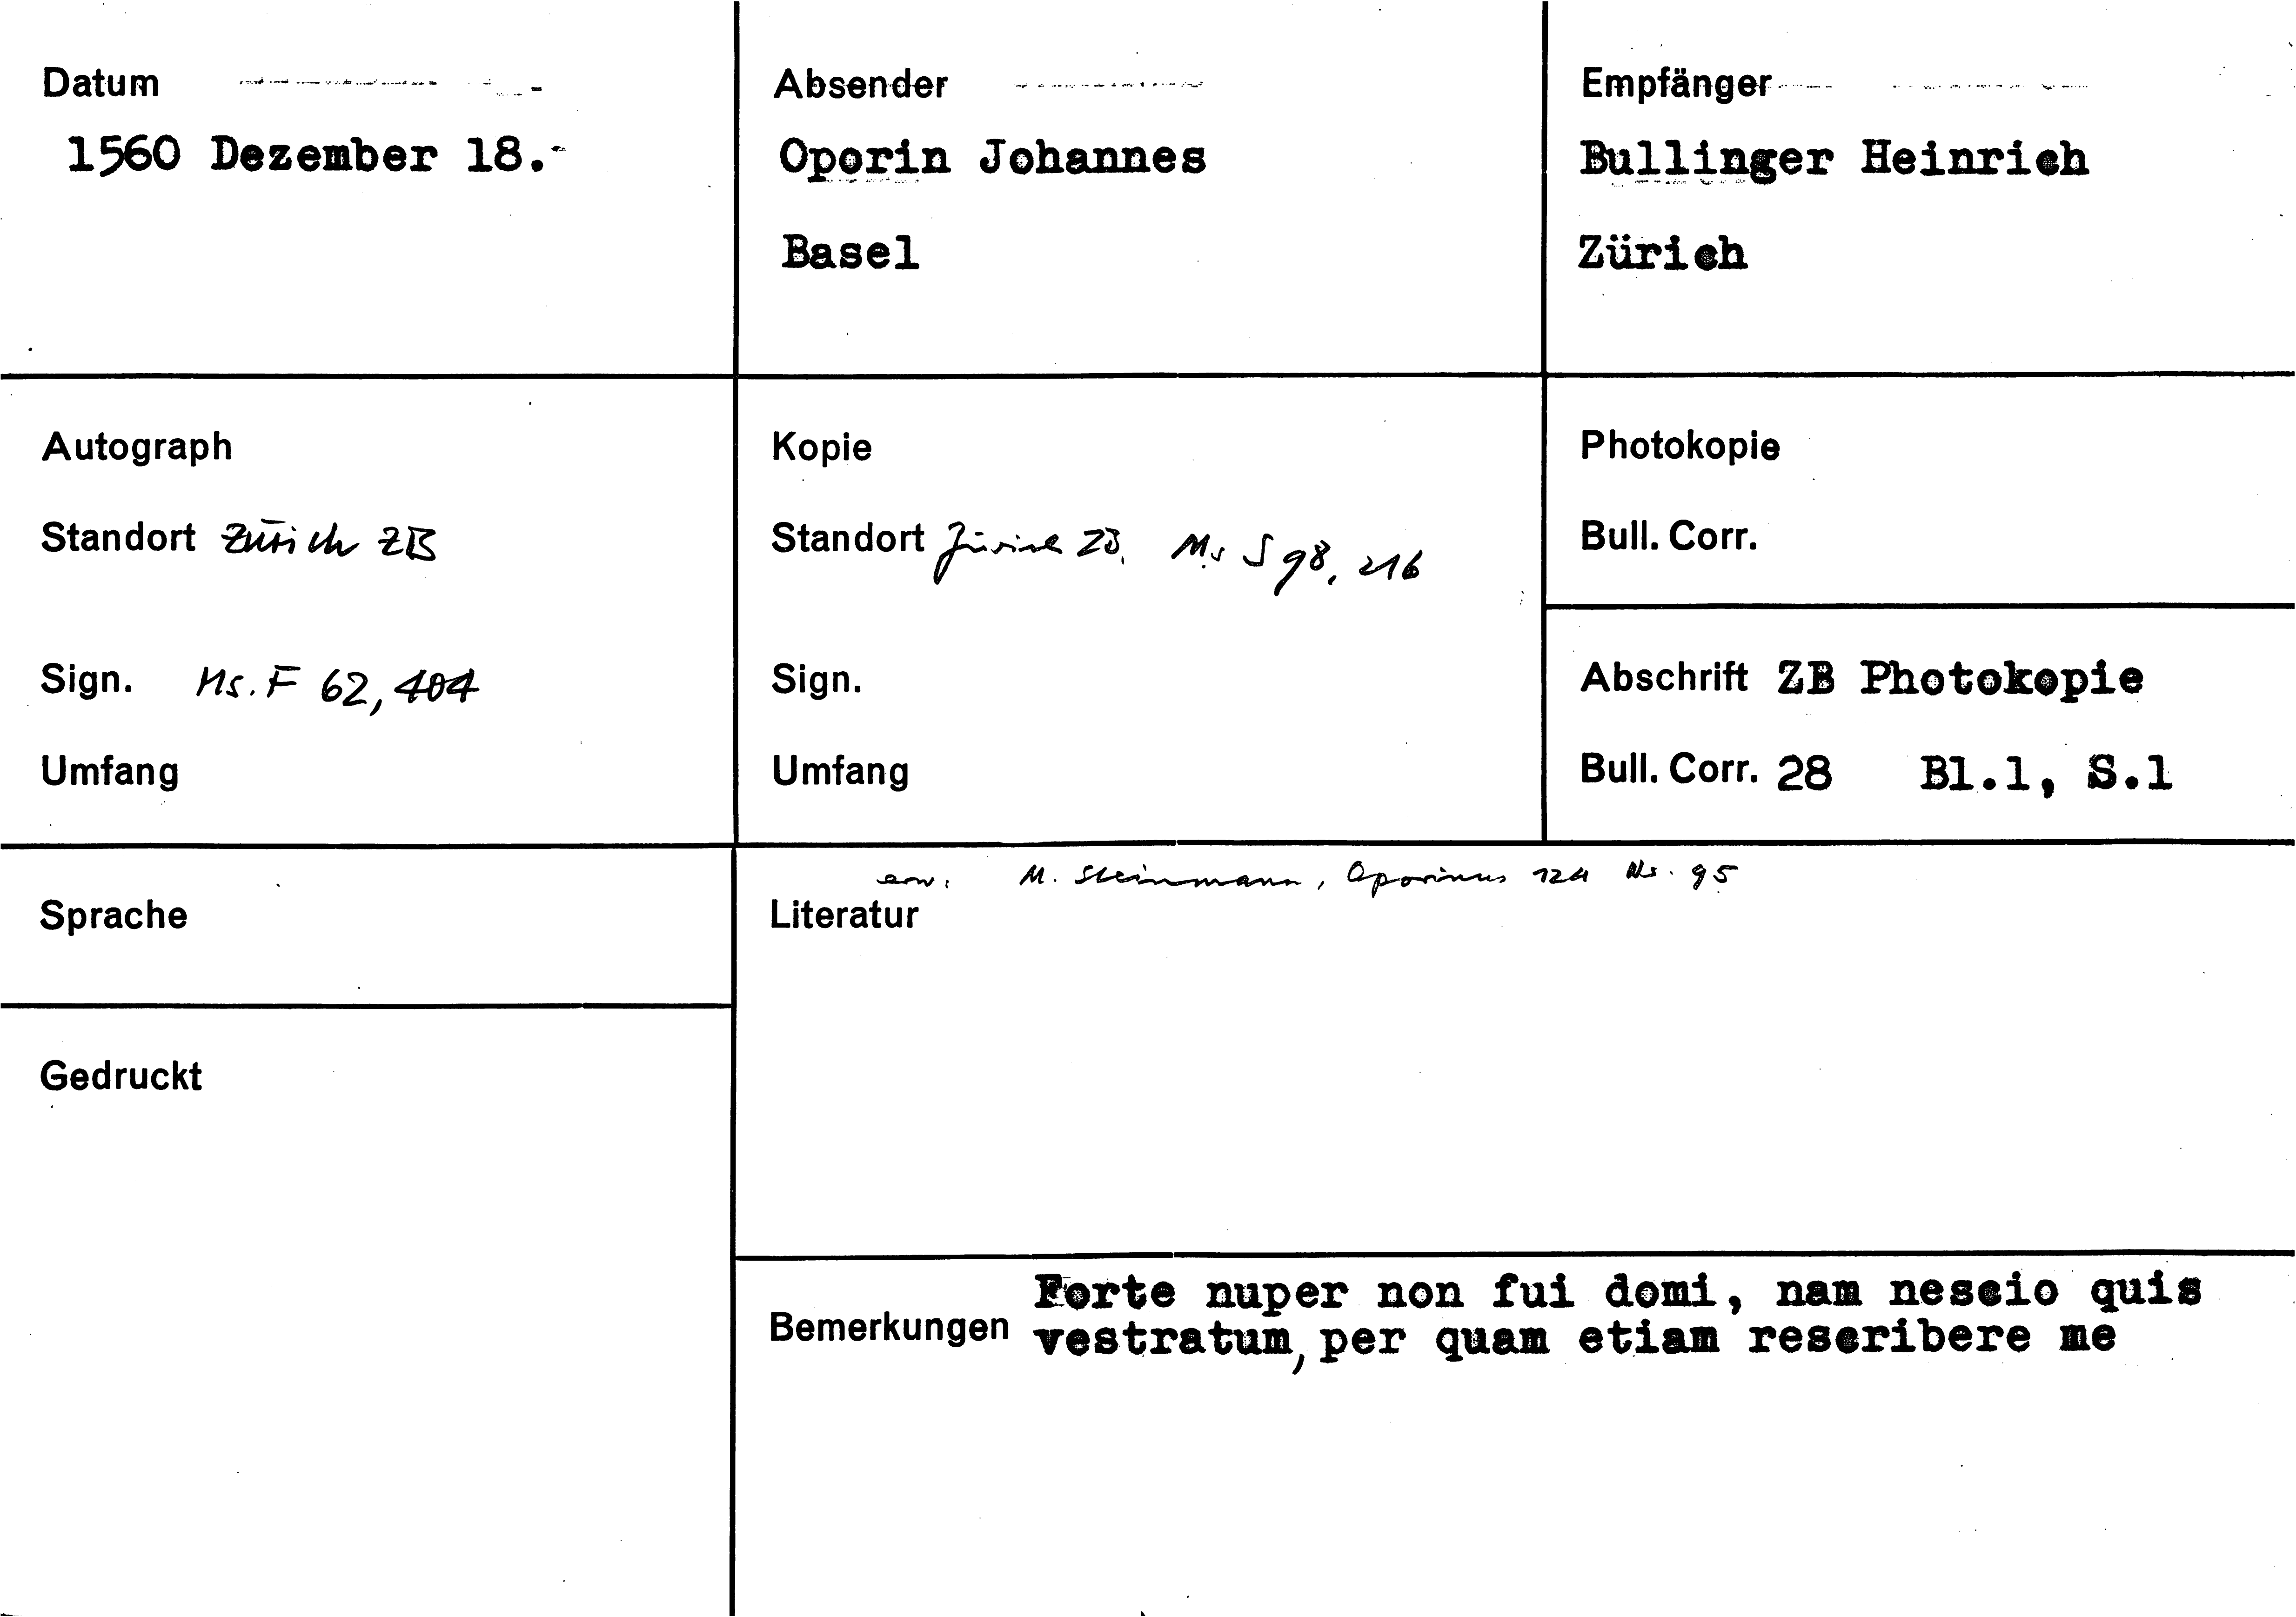 Datum
1560 Dezember 18.-
Absender
Oporin Johannes
Basel
Empfänger
Bullinger Heinrich
Zürich
Autograph
Standort Zürich ZB
Sign. Ms. F 62, 404
Umfang
Kopie
Standort Zürich ZB. Ms S 98, 216
Sign.
Umfang
Photokopie
Bull. Corr.
Abschrift ZB Photokopie
Bull. Corr. 28 Bl.1, S.1
Sprache
Gedruckt
erw. M. Steinmann, Oporinus 124 Nr. 95
Literatur
Bemerkungen Forte nuper non fui domi, nam nescio quis
vestratum, per quam etiam rescribere me